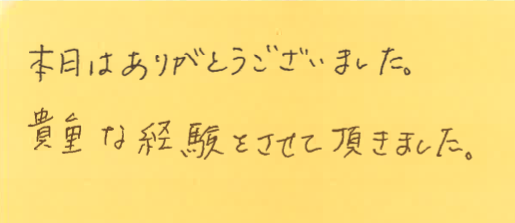 本日はありがとうございました。
貴重な経験をさせて頂きました。